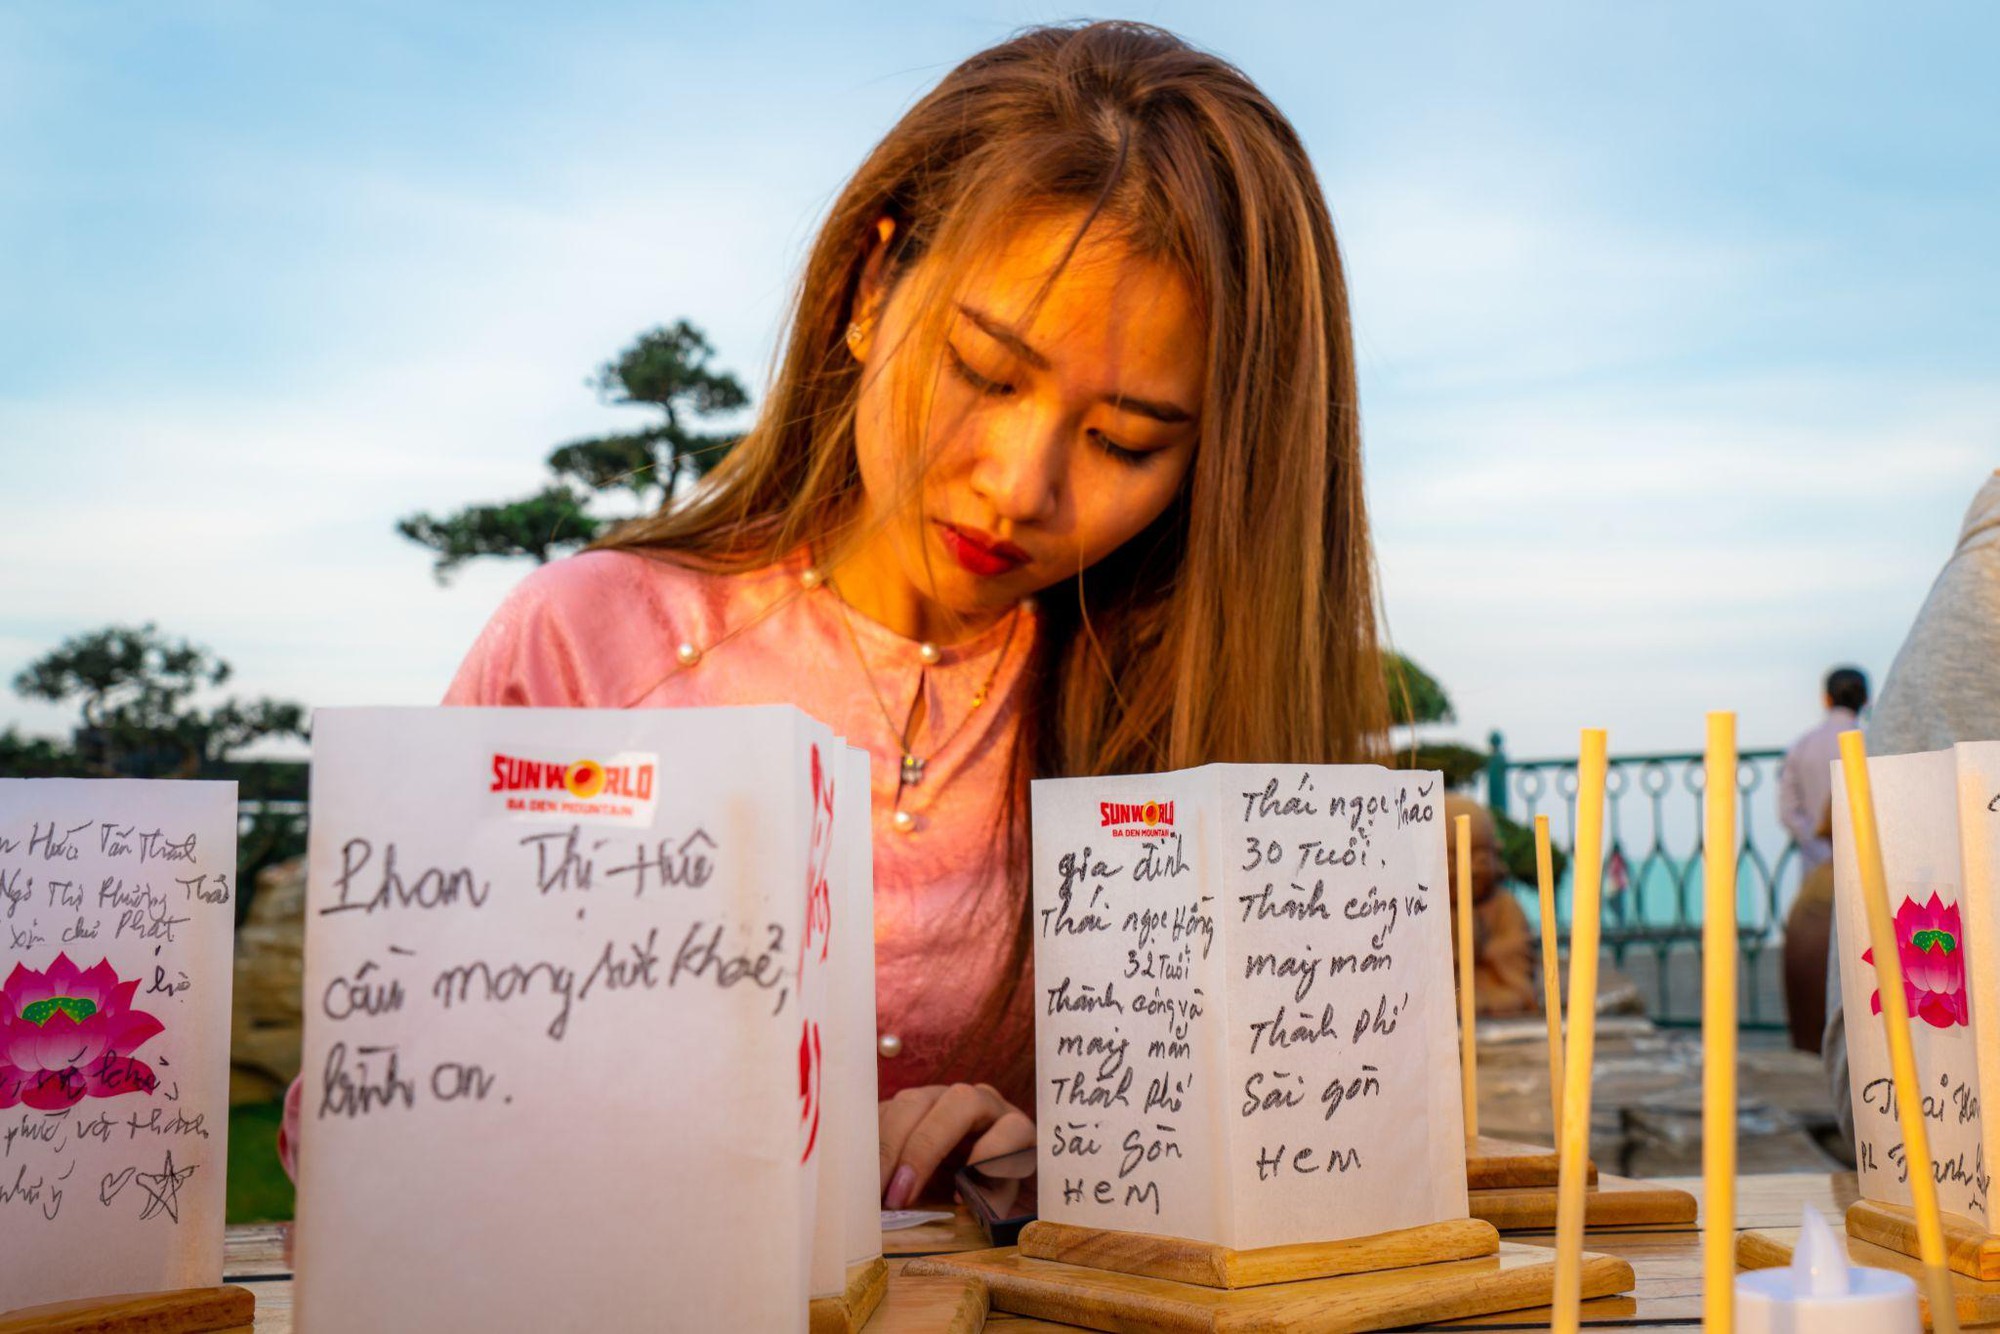 Hứa Tấn Thành
Ngô Thị Phương Thảo
xin chư Phật
hộ
phú, và thành
như ý
SUNWORLD
BA DEN MOUNTAIN
Phan Thị Huê
cầu mong sức khoẻ,
bình an.
SUNWORLD
BA DEN MOUNTAIN
gia đình
Thái ngọc Hồng
32 Tuổi
Thành công và
may mắn
Thành phố
Sài gòn
HEM
Thái ngọc Thảo
30 Tuổi.
Thành công và
may mắn
Thành phố
Sài gòn
HEM
PL